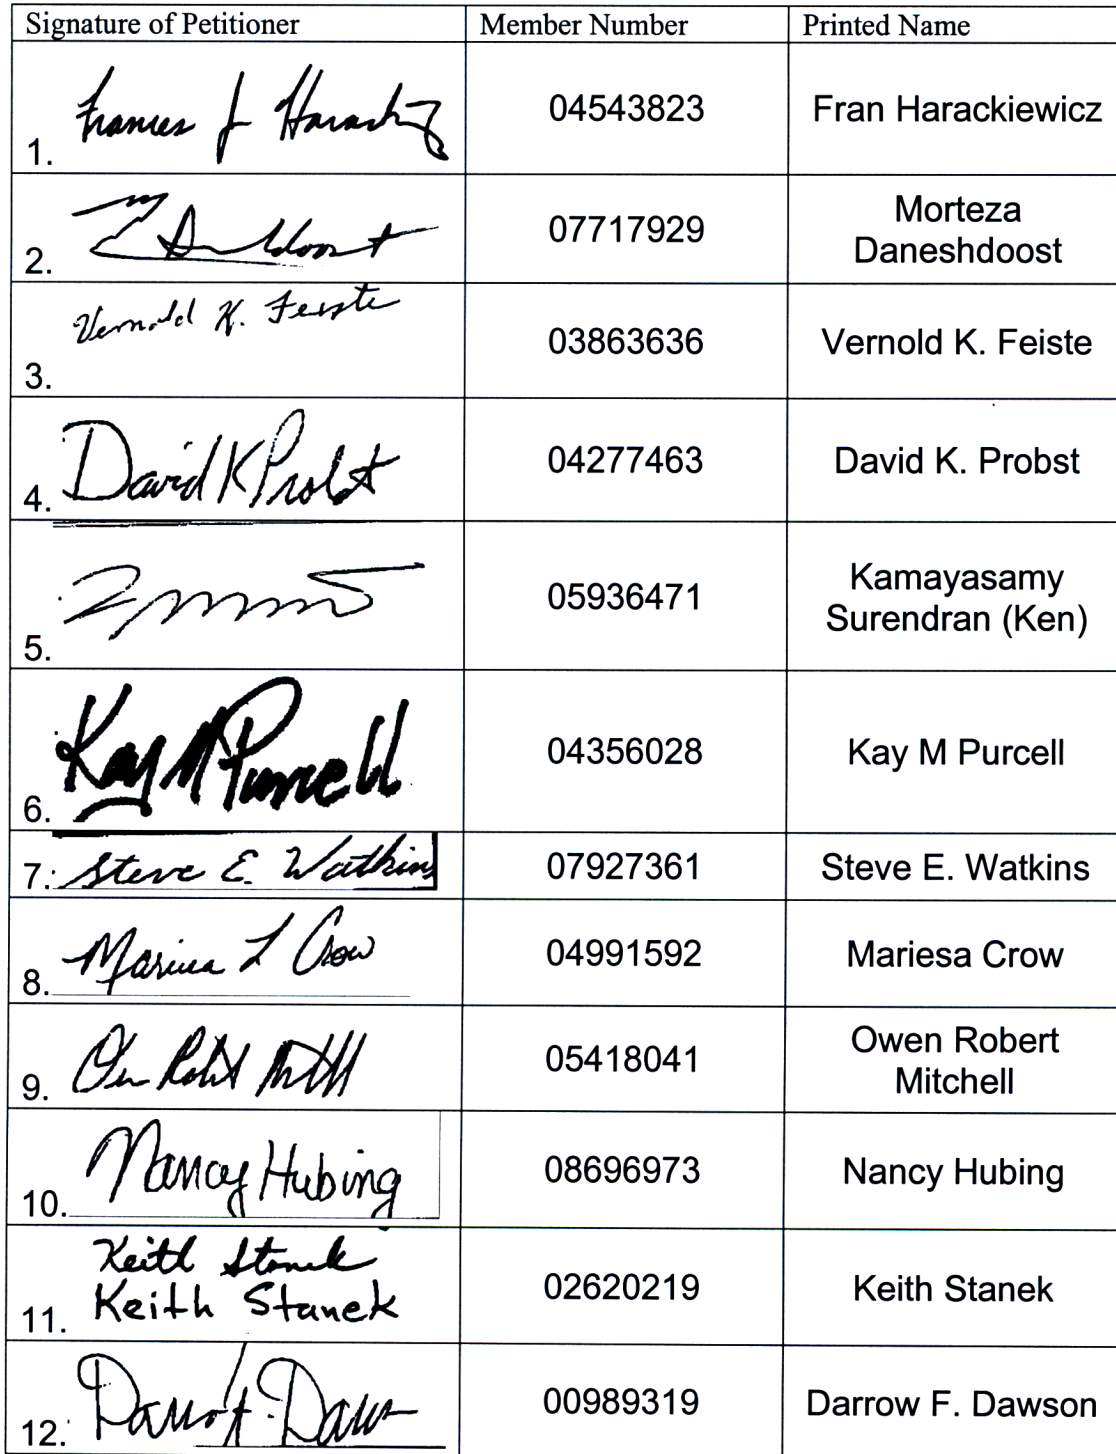 Signature of Petitioner Member Number Printed Name
1. Frances J Harackiewicz 04543823 Fran Harackiewicz
2. Daneshdoost 07717929 Morteza
Daneshdoost
3. Vernold K. Feiste 03863636 Vernold K. Feiste
4. David K Probst 04277463 David K. Probst
5. 05936471 Kamayasamy
Surendran (Ken)
6. Kay M Purcell 04356028 Kay M Purcell
7. Steve E. Watkins 07927361 Steve E. Watkins
8. Mariesa L Crow 04991592 Mariesa Crow
9. Owen Robert Mitchell 05418041 Owen Robert
Mitchell
10. Nancy Hubing 08696973 Nancy Hubing
Keith Stanek
11. Keith Stanek 02620219 Keith Stanek
12. Darrow F. Dawson 00989319 Darrow F. Dawson